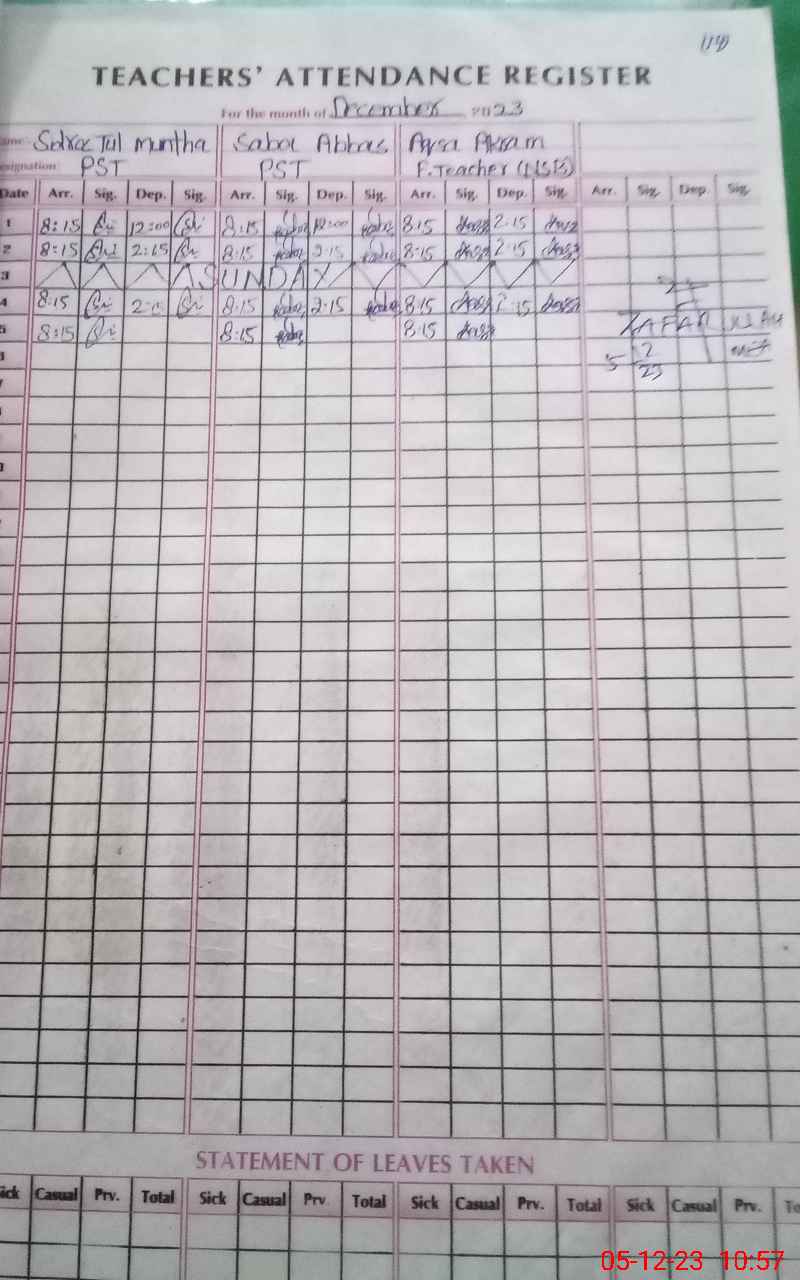 TEACHERS' ATTENDANCE REGISTER
For the month of December 2023
Sidra Tul Muntha Saba Abbas Aqsa Akram
esignation: PST PST F.Teacher (NSB)
Date Arr. Sig. Dep. Sig. Arr. Sig. Dep. Sig. Arr. Sig. Dep. Sig. Arr. Sig. Dep. Sig.
1 8:15 12:00 8:15 12:00 8:15 2:15
2 8:15 2:15 8:15 2:15 8:15 2:15
3 SUNDAY
4 8:15 8:15 2:15 8:15 2:15
5 8:15 8:15 8:15
ZAFAR
5
23
STATEMENT OF LEAVES TAKEN
ick Casual Prv. Total Sick Casual Prv. Total Sick Casual Prv. Total Sick Casual Prv. To
05-12-23 10:57